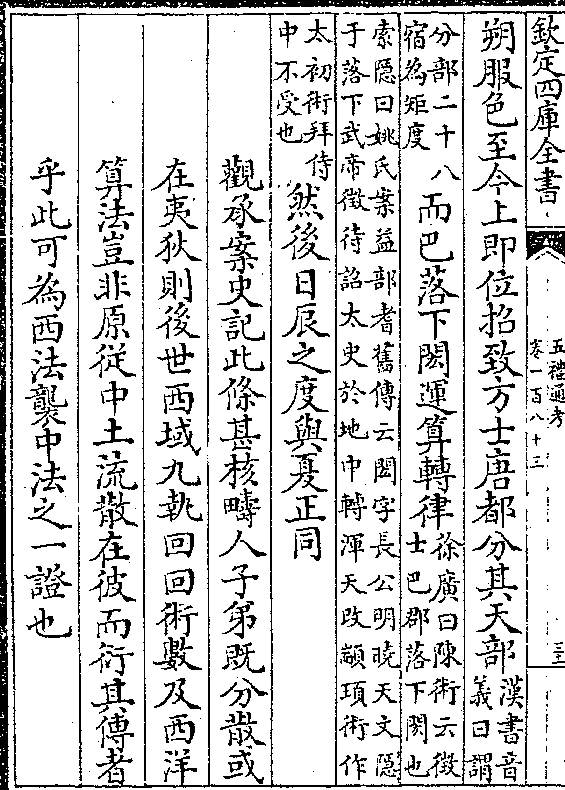 欽定四庫全書
五禮通考
卷一百八十三
三十
朔服色至今上即位招致方士唐都分其天部漢書音義曰謂
分部二十八宿為矩度而巴落下閎運算轉律徐廣曰陳術云徵士巴郡落下閎也
索隱曰姚氏案益部耆舊傳云閎字長公明曉天文隱
于落下武帝徵待詔太史於地中轉渾天改顓頊術作
太初術拜侍中不受也然後日辰之度與夏正同
觀承案史記此條甚核疇人子弟既分散或
在夷狄則後世西域九執回回術數及西洋
算法豈非原從中土流散在彼而衍其傳者
乎此可為西法襲中法之一證也